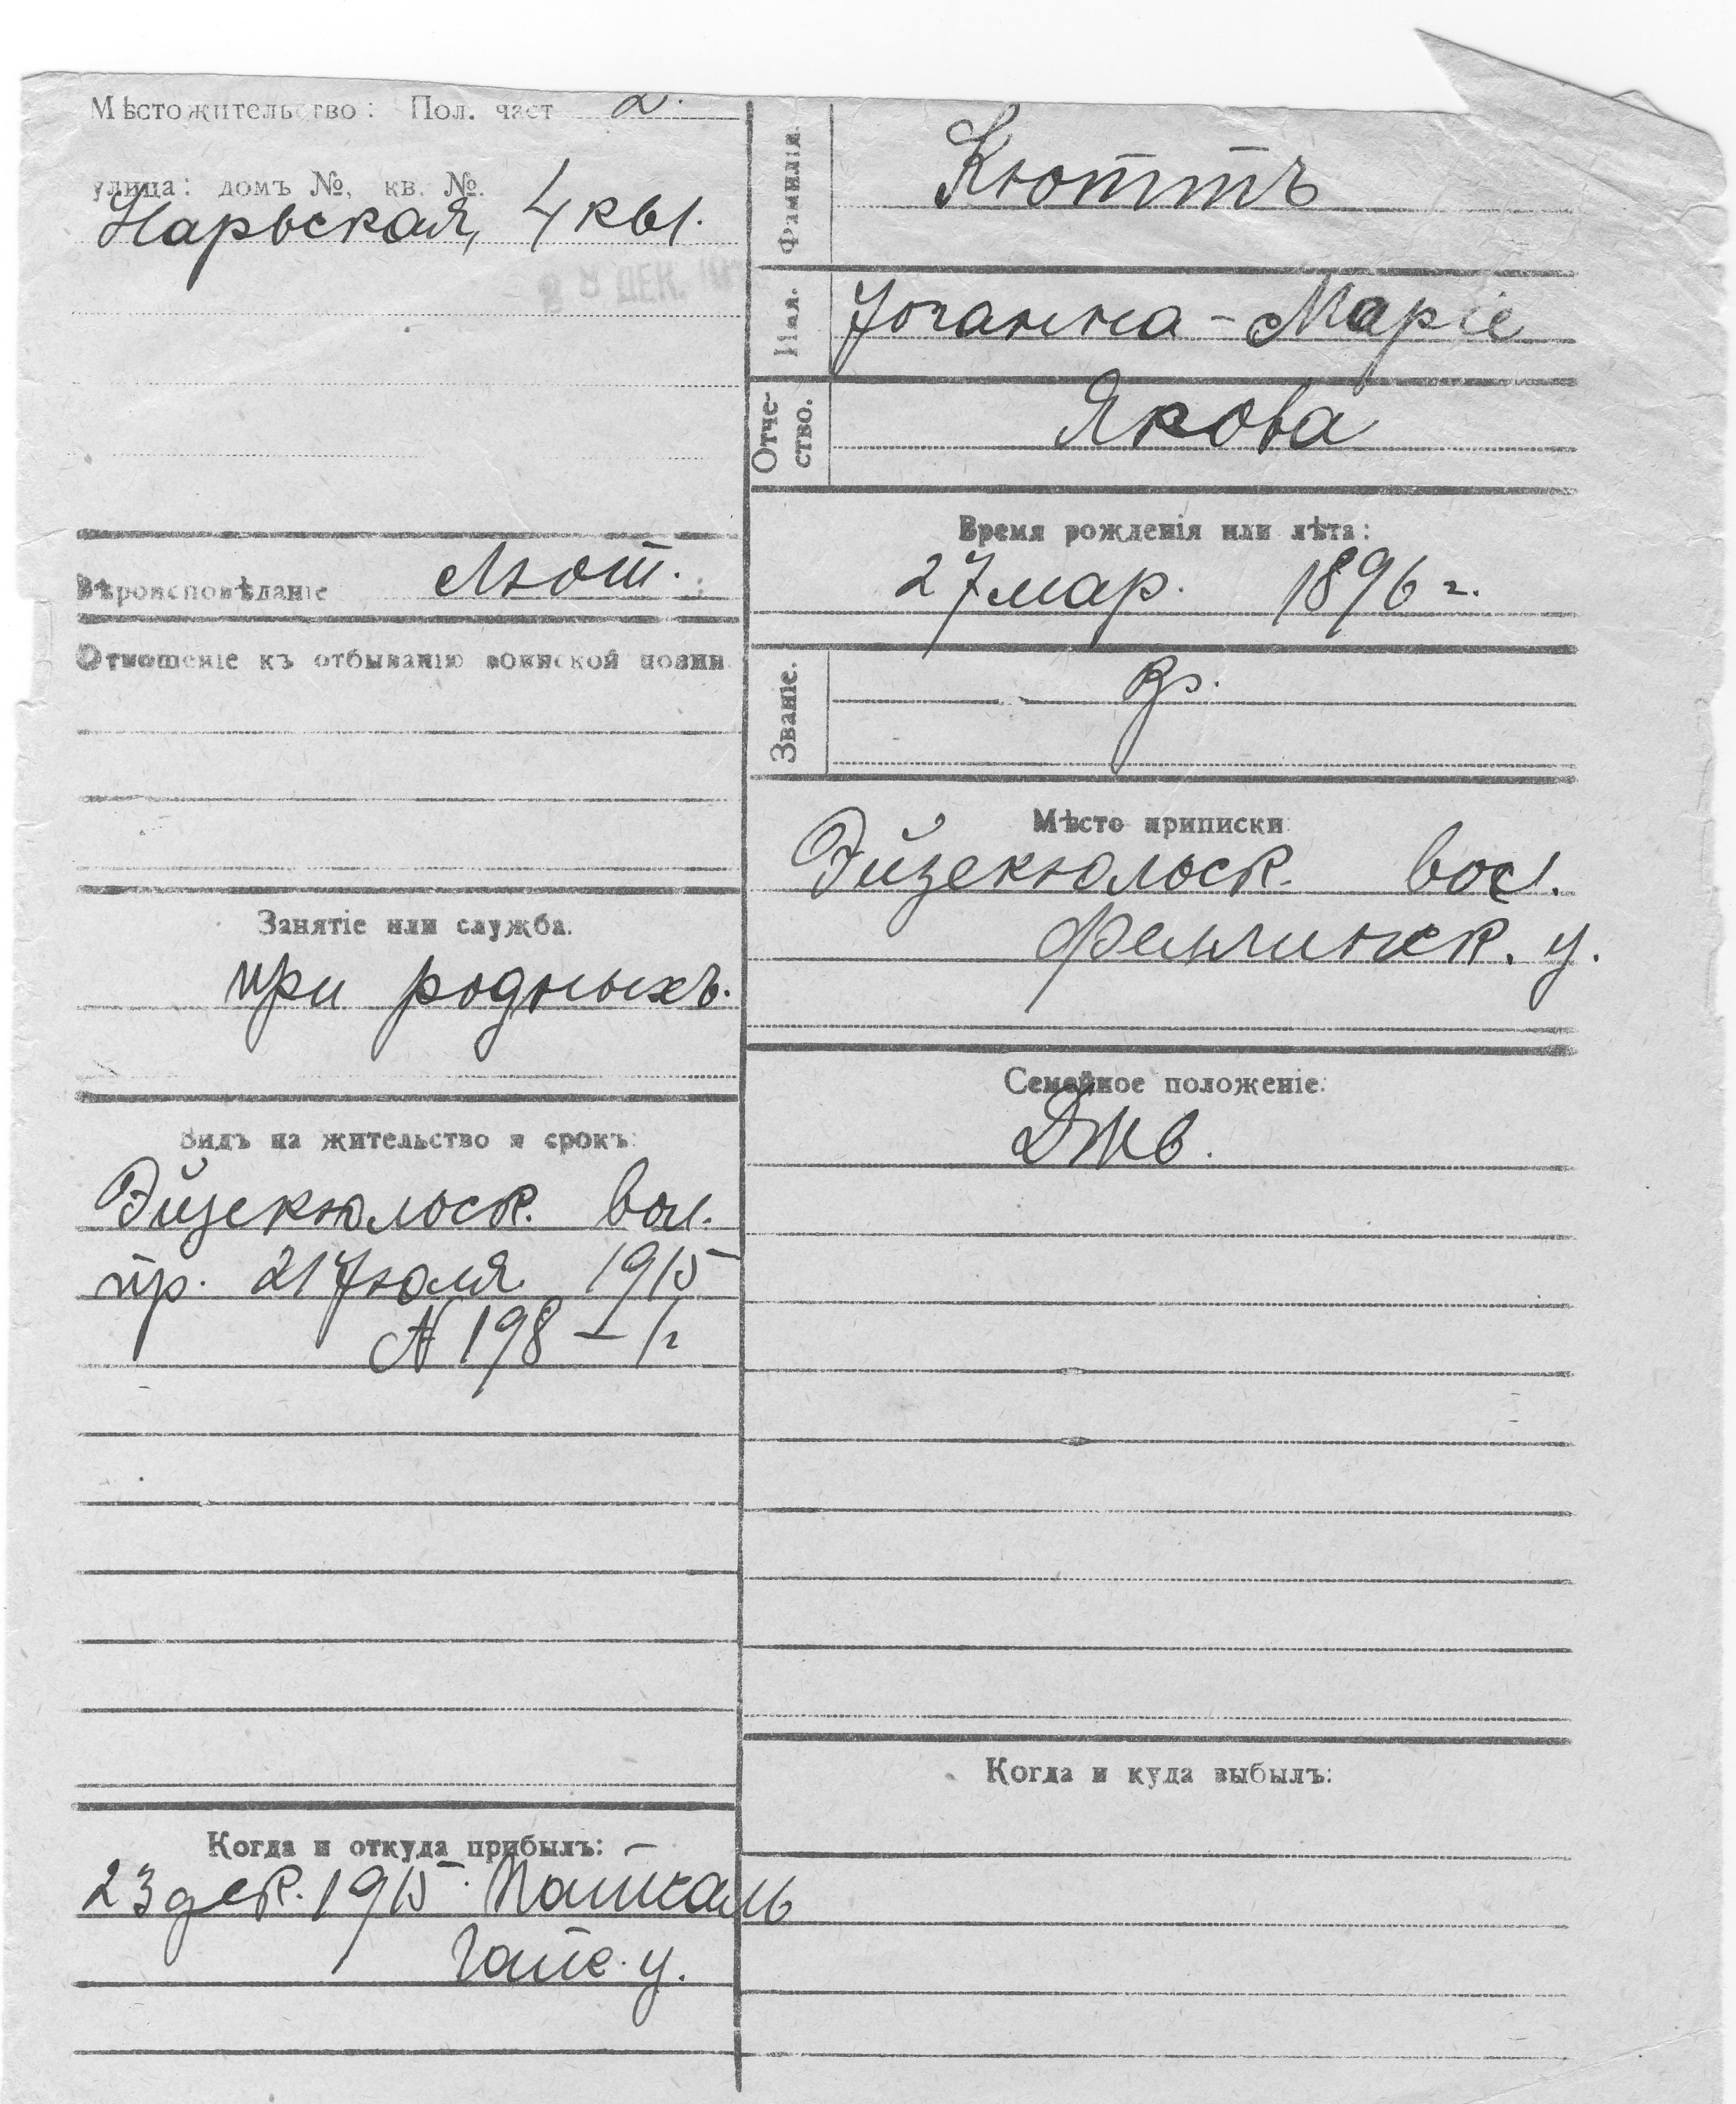 Мѣстожительство: Пол. част 2.
улица: домъ №, кв. №.
Нарвская, 4 кв1.
ДЕК.
Вѣроисповѣданіе Лют.
Отношеніе къ отбыванію воинской повин.
Занятіе или служба.
при родныхъ.
Видъ на жительство и срокъ:
Эйзекюльск. вол.
пр. 21 Іюля 1915
N 198 – 1 г
Когда и откуда прибылъ:
23 дек. 1915
Гапс. у.
Фамилія.
Кюттъ
Имя.
Іоганна-Маріе
Отче-
ство.
Якова
Время рожденія или лѣта:
27 мар. 1896 г.
Званіе.
кр.
Мѣсто приписки
Эйзекюльск. вол.
Феллинск. у.
Семейное положеніе:
Дѣв.
Когда и куда выбылъ: